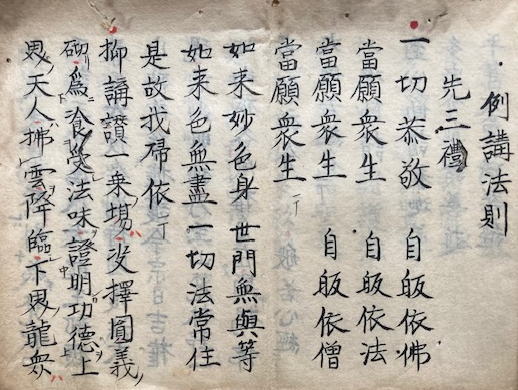 例講法則
先三禮
一切恭敬 自皈依佛
當願衆生 自皈依法
當願衆生 自皈依僧
當願衆生 丁
如来妙色身 世門無與等
如来色無盡 一切法常住
是故我歸依 丁
抑講讃一乗場 没擇圓義
砌爲飡受法味證明功德上
界天人拂雲降臨下界龍衆